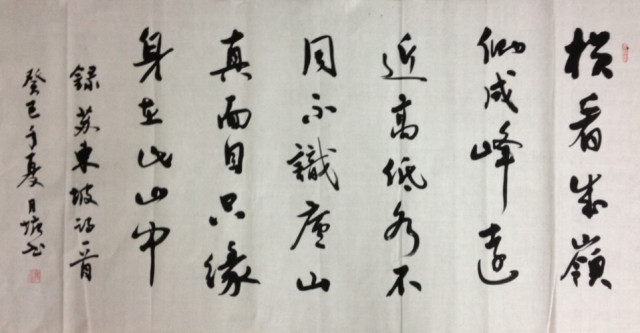 横看成嶺
側成峰遠
近高低各不
同不識廬山
真面目只緣
身在此山中
錄苏東坡诗一首
癸巳年夏月书